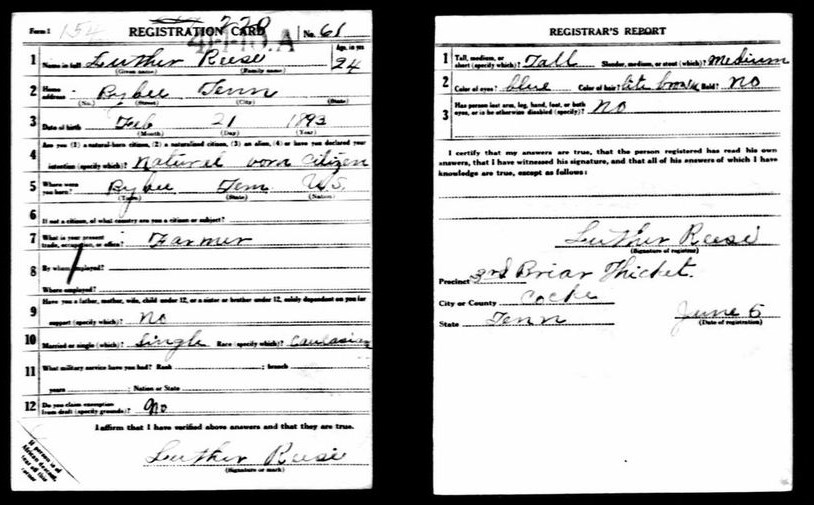 Form 1 154 REGISTRATION CARD 220 No. 61
41-1-15. A
1 Name in full Luther Reese Age, in yrs 24
(Given name) (Family name)
2 Home address Bybee Tenn
(No.) (Street) (City) (State)
3 Date of birth Feb 21 1893
(Month) (Day) (Year)
4 Are you (1) a natural-born citizen, (2) a naturalized citizen, (3) an alien, (4) or have you declared your
intention (specify which)? Naturel born Citizen
5 Where were you born? Bybee Tenn U.S.
(Town) (State) (Nation)
6 If not a citizen, of what country are you a citizen or subject?
7 What is your present trade, occupation, or office? Farmer
8 By whom employed?
Where employed?
9 Have you a father, mother, wife, child under 12, or a sister or brother under 12, solely dependent on you for
support (specify which)? No
10 Married or single (which)? Single Race (specify which)? Caucasian
11 What military service have you had? Rank ; branch ;
years ; Nation or State
12 Do you claim exemption from draft (specify grounds)? No
I affirm that I have verified above answers and that they are true.
Luther Reese
(Signature or mark)
If person is of
African descent,
tear off this
corner
REGISTRAR'S REPORT
1 Tall, medium, or short (specify which)? Tall Slender, medium, or stout (which)? Medium
2 Color of eyes? blue Color of hair? lite brown Bald? No
3 Has person lost arm, leg, hand, foot, or both
eyes, or is he otherwise disabled (specify)? No
I certify that my answers are true, that the person registered has read his own
answers, that I have witnessed his signature, and that all of his answers of which I have
knowledge are true, except as follows:
Luther Reese
(Signature of registrar)
Precinct 3rd Briar Thicket.
City or County Cocke
State Tenn June 5
(Date of registration)